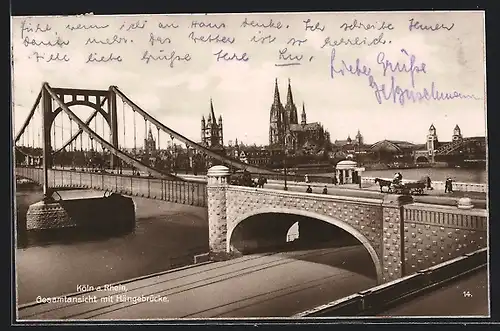 wenn ich an Haus denke. Ich schreibe Ihnen
dann mehr. Das Wetter ist so herrlich.
Viele liebe Grüße Ihre
Liebe Grüße
Köln a. Rhein.
Gesamtansicht mit Hängebrücke.
14.